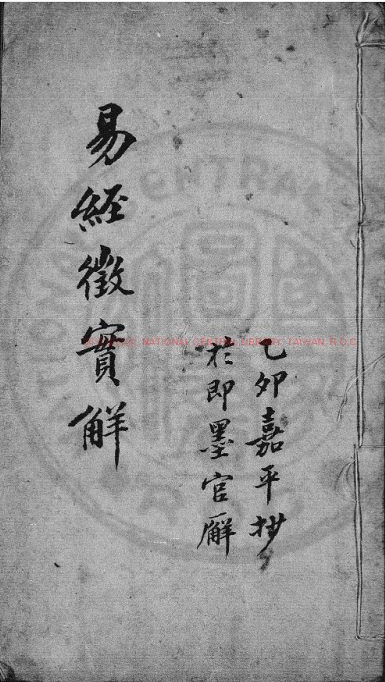 乙卯嘉平抄
於即墨官廨
易經徵實解
NATIONAL CENTRAL LIBRARY, TAIWAN R.O.C